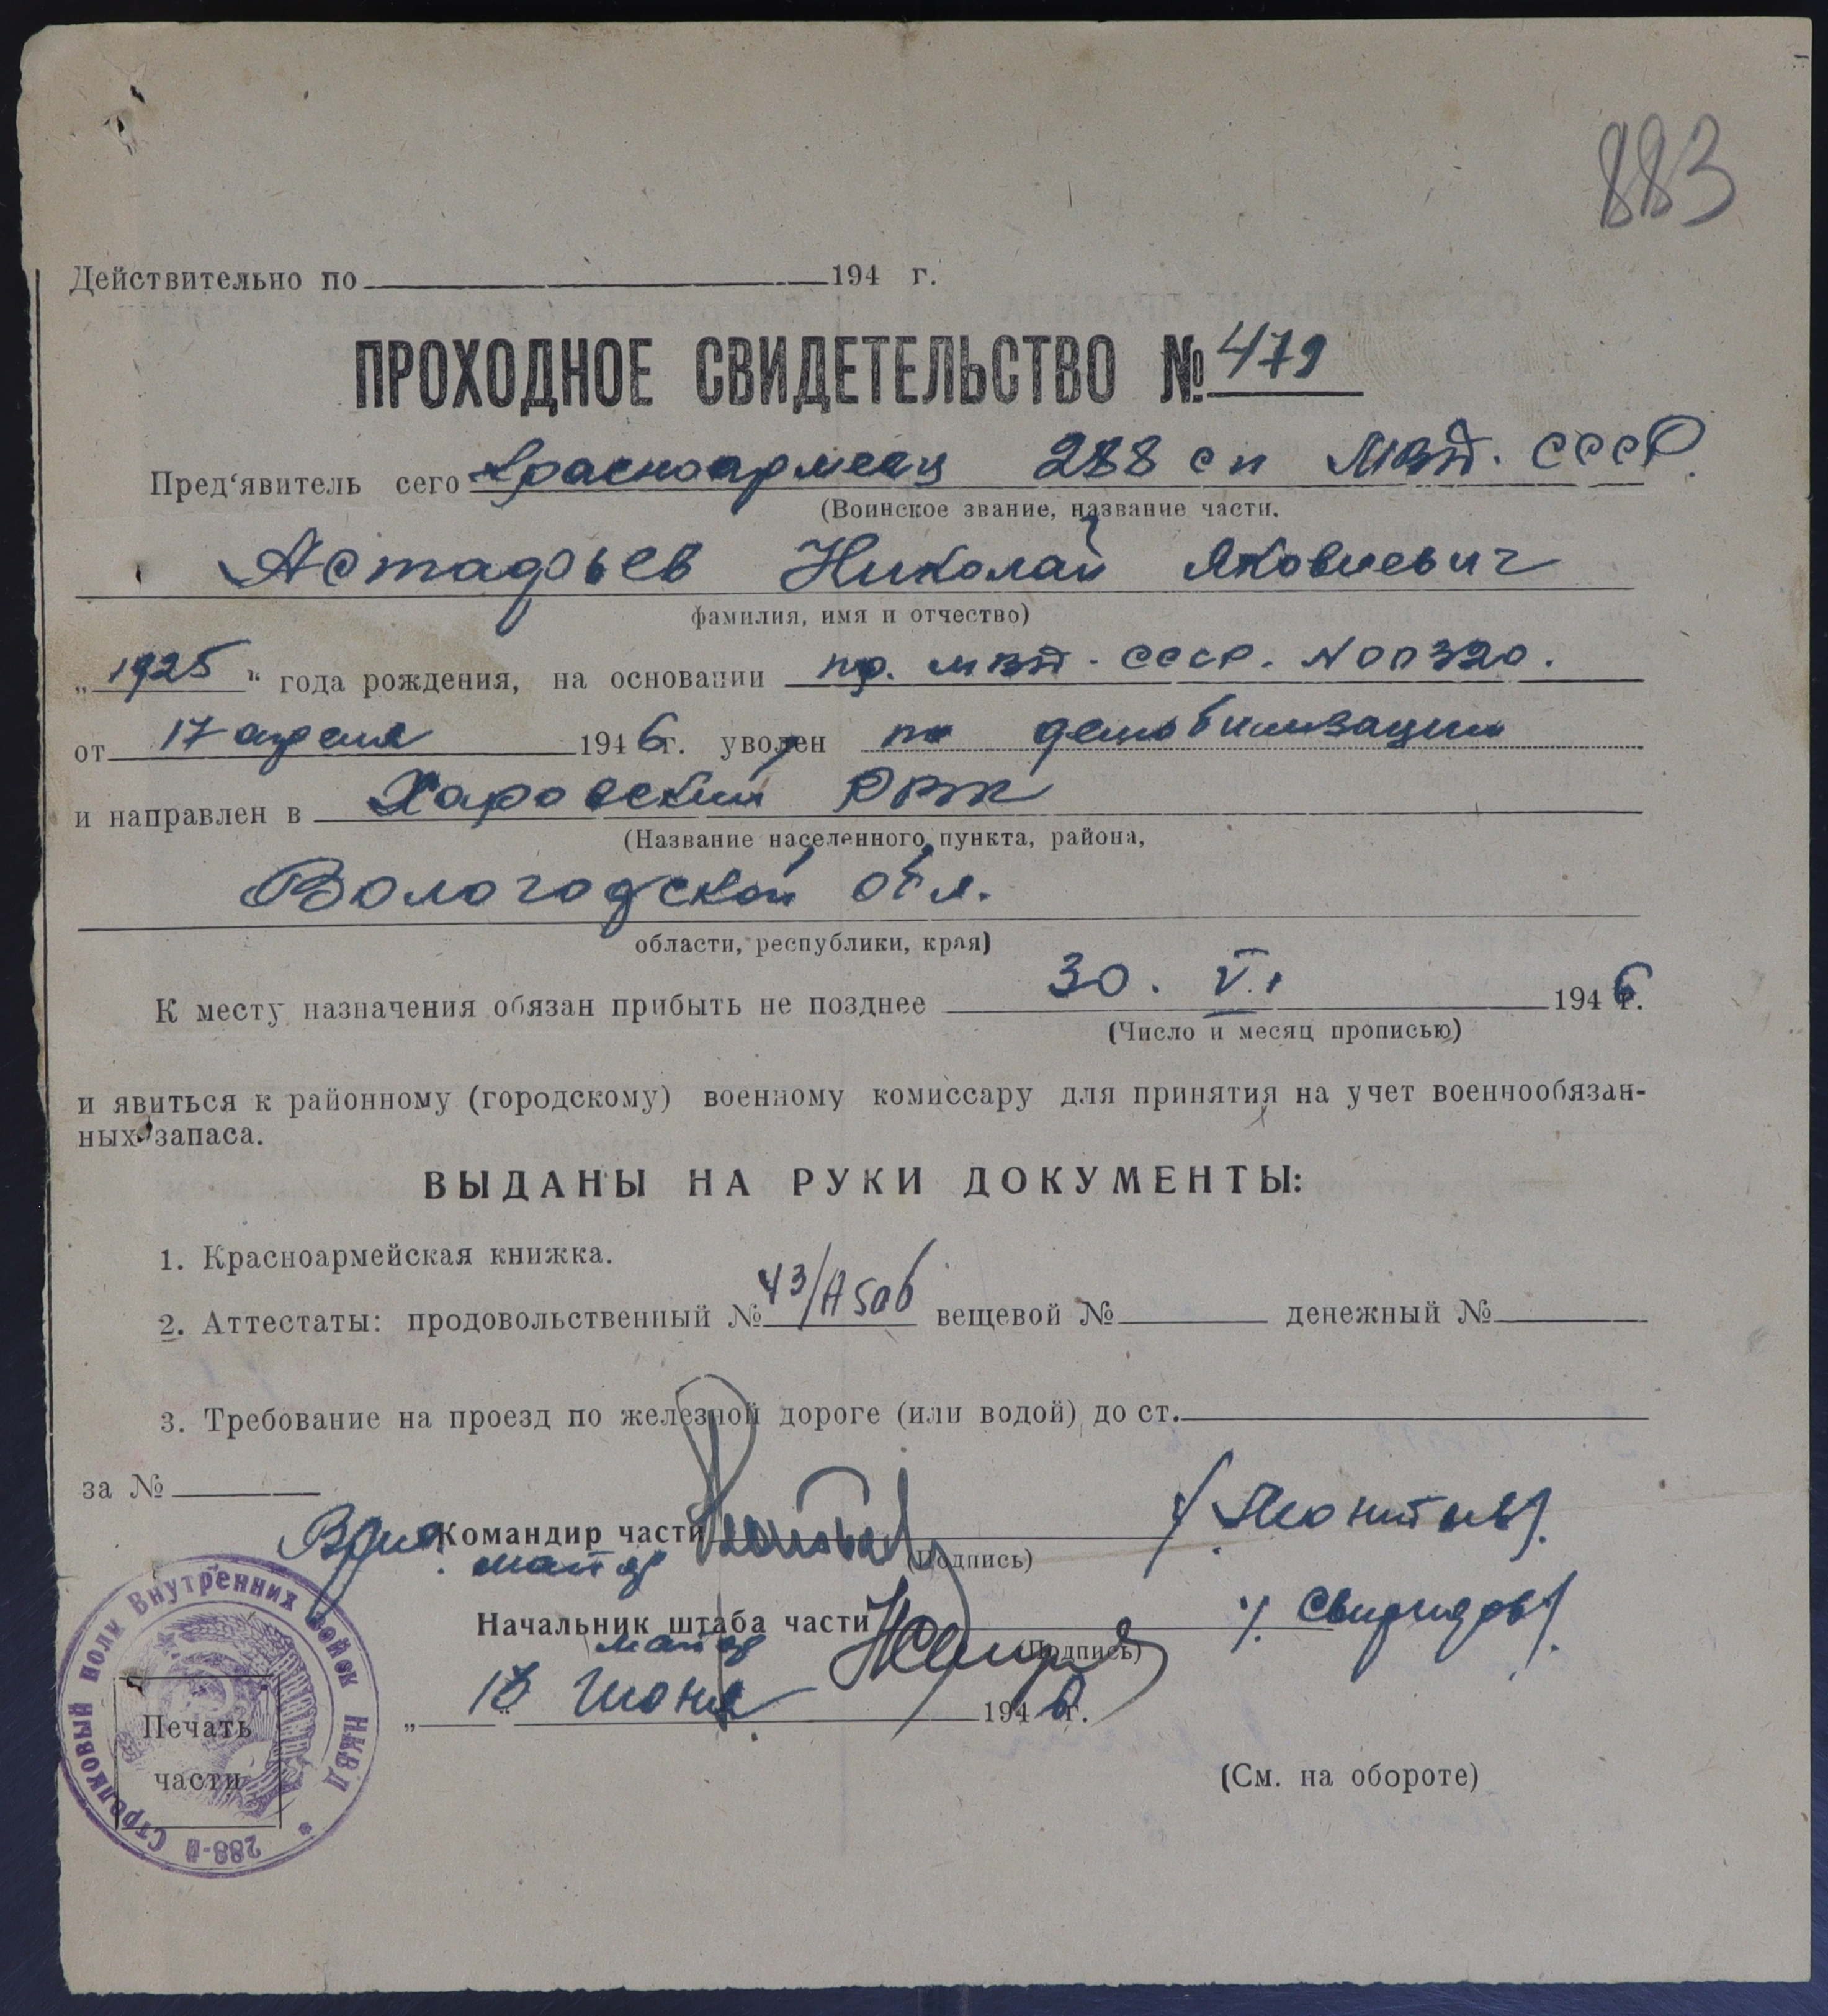 883
Действительно по 194 г.
ПРОХОДНОЕ СВИДЕТЕЛЬСТВО № 479
Пред‘явитель сего Красноармеец 288 сп МВД. СССР.
(Воинское звание, название части,
Астафьев Николай Яковлевич
фамилия, имя и отчество)
„1925“ года рождения, на основании пр. МВД. СССР. N 00320.
от 17 апреля 1946 г. уволен по демобилизации
и направлен в Харовский РВК
(Название населенного пункта, района,
Вологодской обл.
области, республики, края)
К месту назначения обязан прибыть не позднее 30. VI 1946 г.
(Число и месяц прописью)
и явиться к районному (городскому) военному комиссару для принятия на учет военнообязан-
ных запаса.
ВЫДАНЫ НА РУКИ ДОКУМЕНТЫ:
1. Красноармейская книжка.
2. Аттестаты: продовольственный № 43/А506 вещевой № денежный №
3. Требование на проезд по железной дороге (или водой) до ст.
за №
Врио. Командир части /Леонтьев/.
майор (Подпись)
Начальник штаба части /Свиридов/.
майор (Подпись)
„18“ Июня 1946 г.
Печать
части
288-й Стрелковый полк Внутренних Войск НКВД *
(См. на обороте)